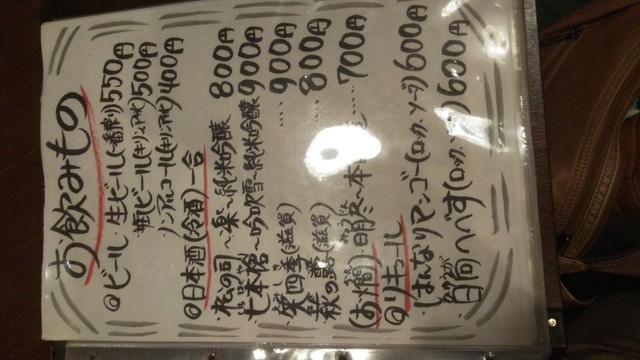 お飲みもの
◎ビール・生ビール(一番搾り)550円
・瓶ビール(キリン,アサヒ)500円
・ノンアルコール(キリン,アサヒ)400円
◎日本酒(冷酒)一合
・松の司 ~楽~純米吟醸 800円
・七本槍 ~吟吹雪~純米吟醸 900円
・笑四季(滋賀) ‥‥ 900円
・萩の露(滋賀) ‥‥ 800円
(お燗) 明尽~本 700円
◎リキュール
・はんなりマンゴー(ロック、ソーダ)600円
・日向へべす(ロック、 )600円